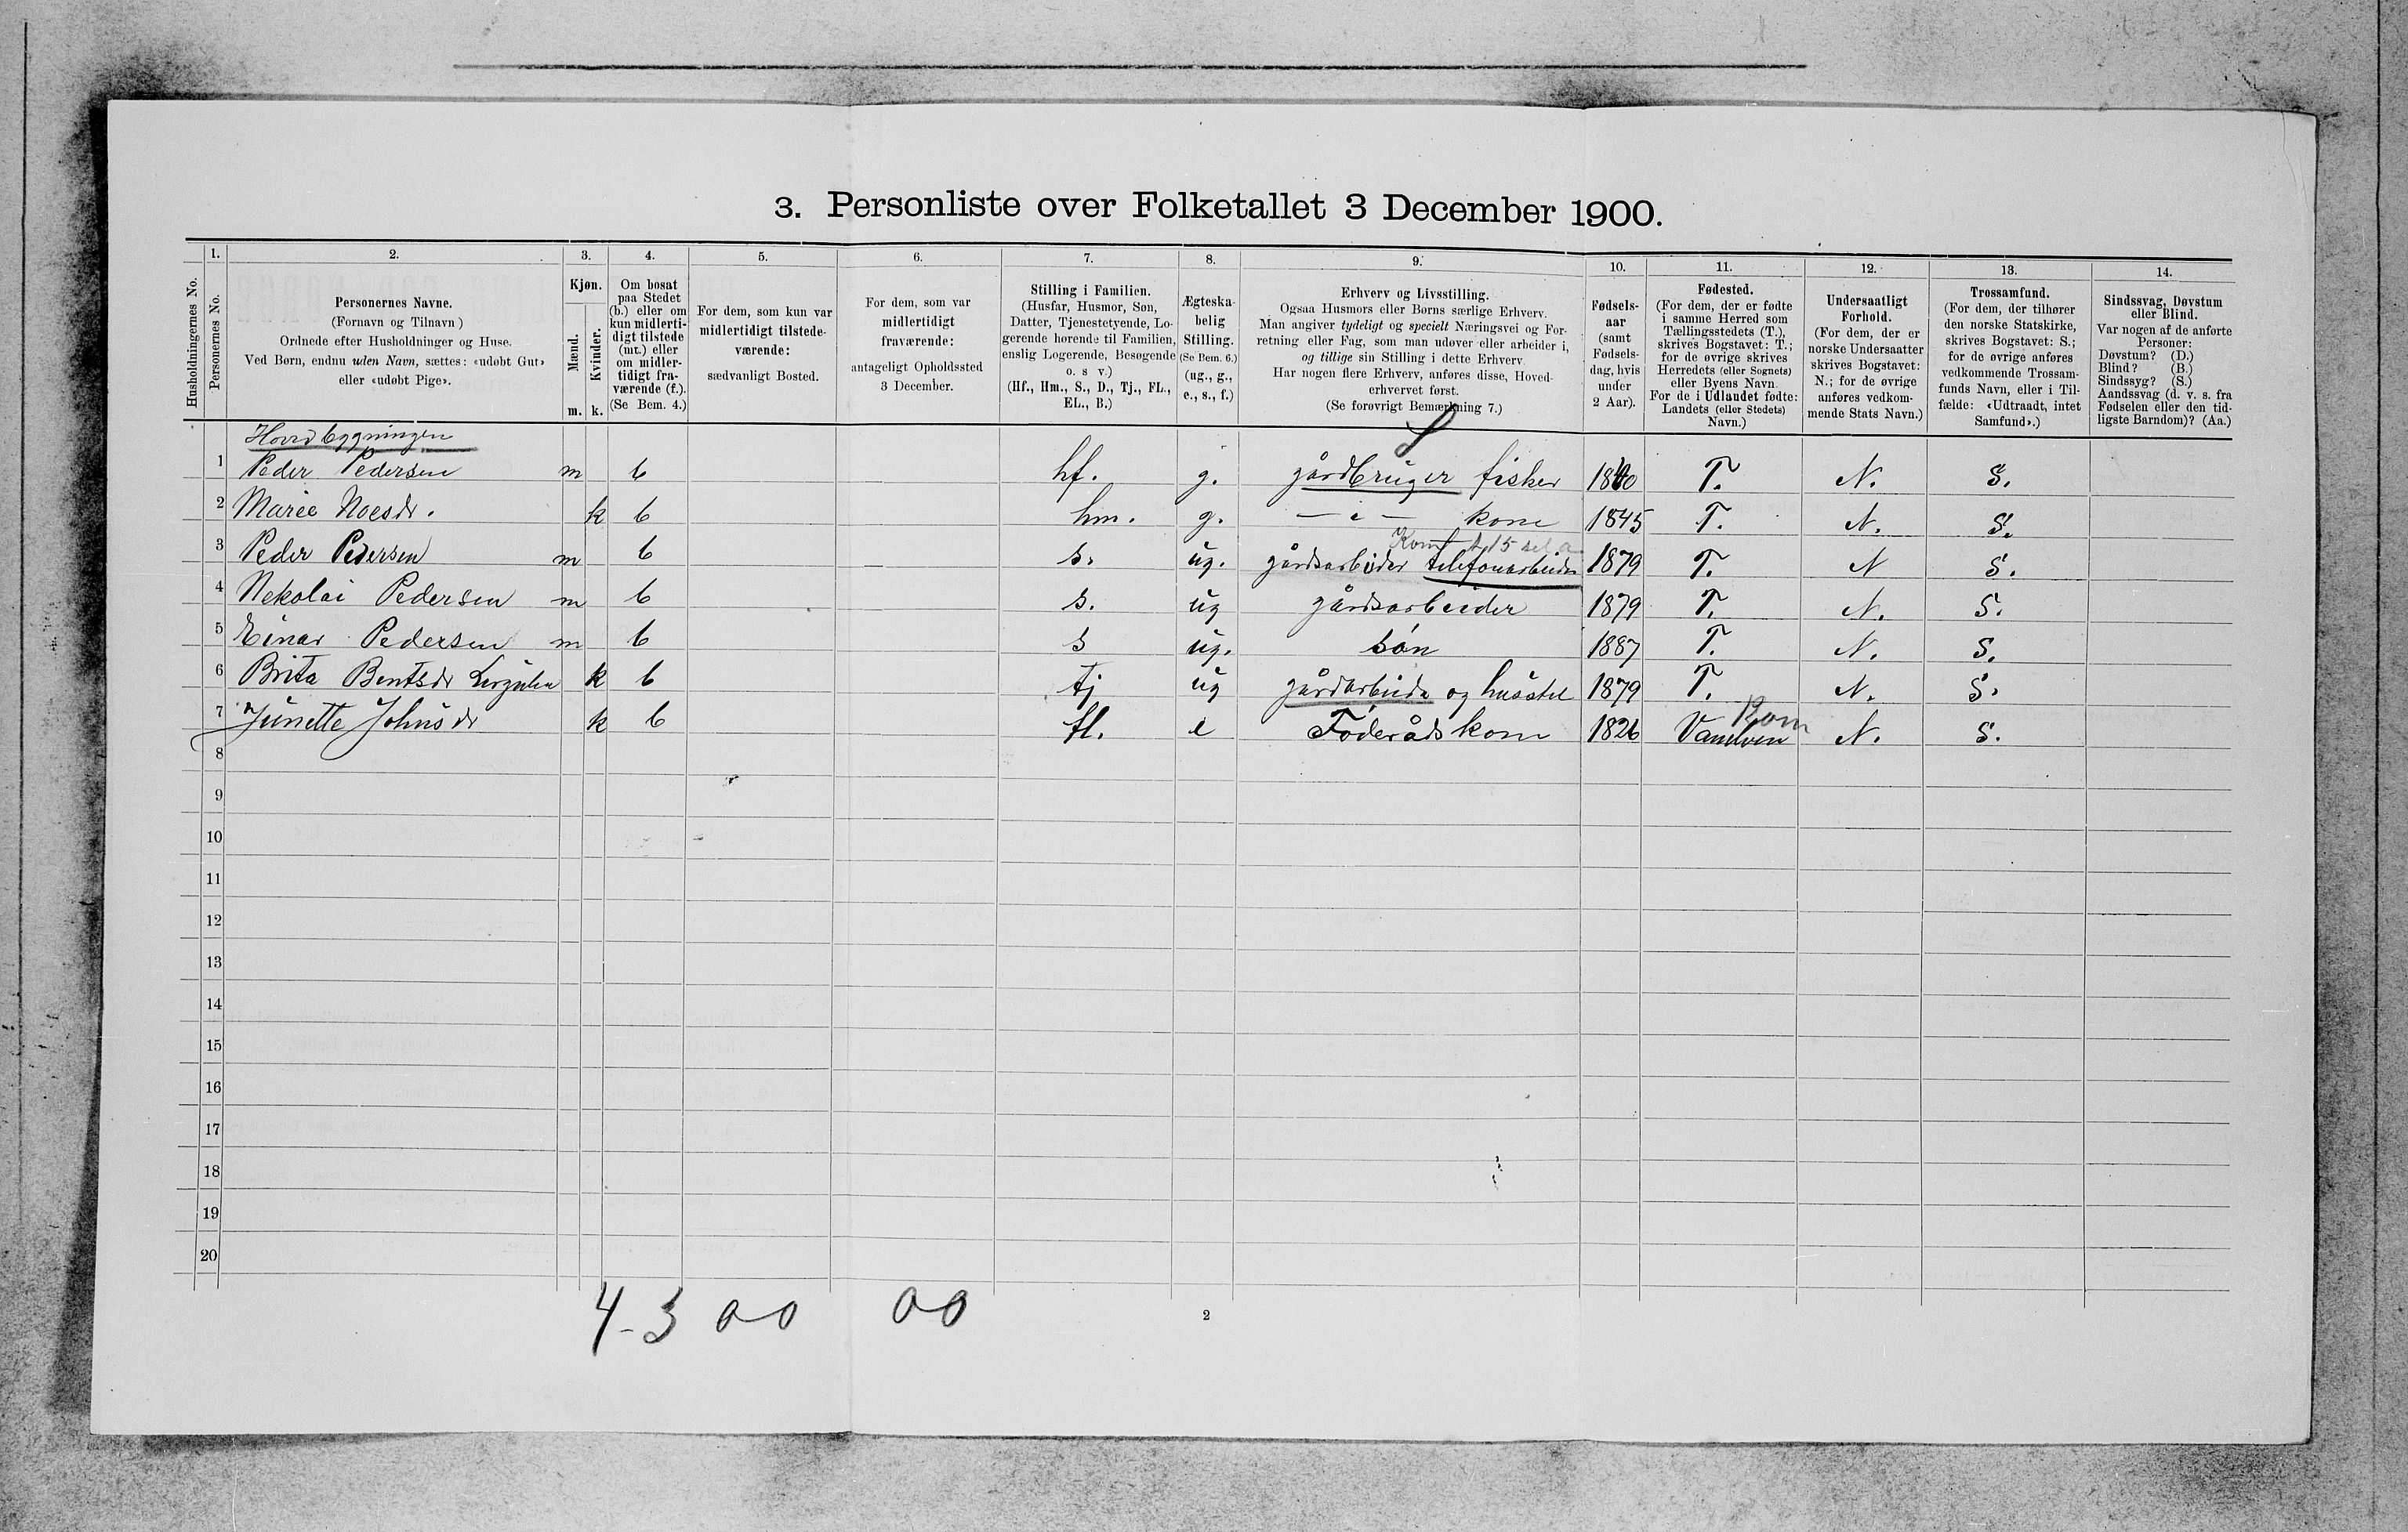 3. Personliste over Folketallet 3 December 1900.
Husholdningernes No.
1.
Personernes No.
2.
Personernes Navne.
(Fornavn og Tilnavn)
Ordnede efter Husholdninger og Huse.
Ved Børn, endnu uden Navn, sættes: «udøbt Gut»
eller «udøbt Pige».
3.
Kjøn.
Mænd.
Kvinder.
m.
k.
4.
Om bosat
paa Stedet
(b.) eller om
kun midlerti-
digt tilstede
(mt.) eller
om midler-
tidigt fra-
værende (f.).
(Se Bem. 4.)
5.
For dem, som kun var
midlertidigt tilstede-
værende:
sædvanligt Bosted.
6.
For dem, som var
midlertidigt
fraværende:
antageligt Opholdssted
3 December.
7.
Stilling i Familien.
(Husfar, Husmor, Søn,
Datter, Tjenestetyende, Lo-
gerende hørende til Familien,
enslig Logerende, Besøgende
o. s v.)
(Hf., Hm., S., D., Tj., FL.,
EL., B.)
8.
Ægteska-
belig
Stilling.
(Se Bem. 6.)
(ug., g.,
e., s., f.)
9.
Erhverv og Livsstilling.
Ogsaa Husmors eller Børns særlige Erhverv.
Man angiver tydeligt og specielt Næringsvei og For-
retning eller Fag, som man udøver eller arbeider i,
og tillige sin Stilling i dette Erhverv
Har nogen flere Erhverv, anføres disse, Hoved-
erhvervet først.
(Se forøvrigt Bemærkning 7.)
10.
Fødsels-
aar
(samt
Fødsels-
dag, hvis
under
2 Aar).
11.
Fødested.
(For dem, der er fødte
i samme Herred som
Tællingsstedets (T.),
skrives Bogstavet: T.;
for de øvrige skrives
Herredets (eller Sognets)
eller Byens Navn
For de i Udlandet fødte:
Landets (eller Stedets)
Navn.)
12.
Undersaatligt
Forhold.
(For dem, der er
norske Undersaatter
skrives Bogstavet:
N.; for de øvrige
anføres vedkom-
mende Stats Navn.)
13.
Trossamfund.
(For dem, der tilhører
den norske Statskirke,
skrives Bogstavet: S.;
for de øvrige anføres
vedkommende Trossam-
funds Navn, eller i Til-
fælde: «Udtraadt, intet
Samfund».)
14.
Sindssvag, Døvstum
eller Blind.
Var nogen af de anførte
Personer:
Døvstum? (D.)
Blind? (B.)
Sindssyg? (S.)
Aandssvag (d. v. s. fra
Fødselen eller den tid-
ligste Barndom)? (Aa.)
Hovedbygningen
1 Peder Pedersen m b hf. g. gårdbruger fisker T. N. S.
2 Marie k b hm. g. kone 1845 T. N. S.
3 Peder Pedersen m b s. ug. gårdsarbeider telefonarbeider 1879 T. N S.
4 Nekolai Pedersen m b s. ug gårdsarbeider 1879 T. N. S.
5 Einar Pedersen m b s ug. søn 1887 T. N. S.
6 Brita Bentsdr k b tj ug og husstel 1879 T. N. S.
7 Johnsdr k b fl. e Föderådskone 1826 Vanelven N. S.
8
9
10
11
12
13
14
15
16
17
18
19
20
4-3 00 00
2